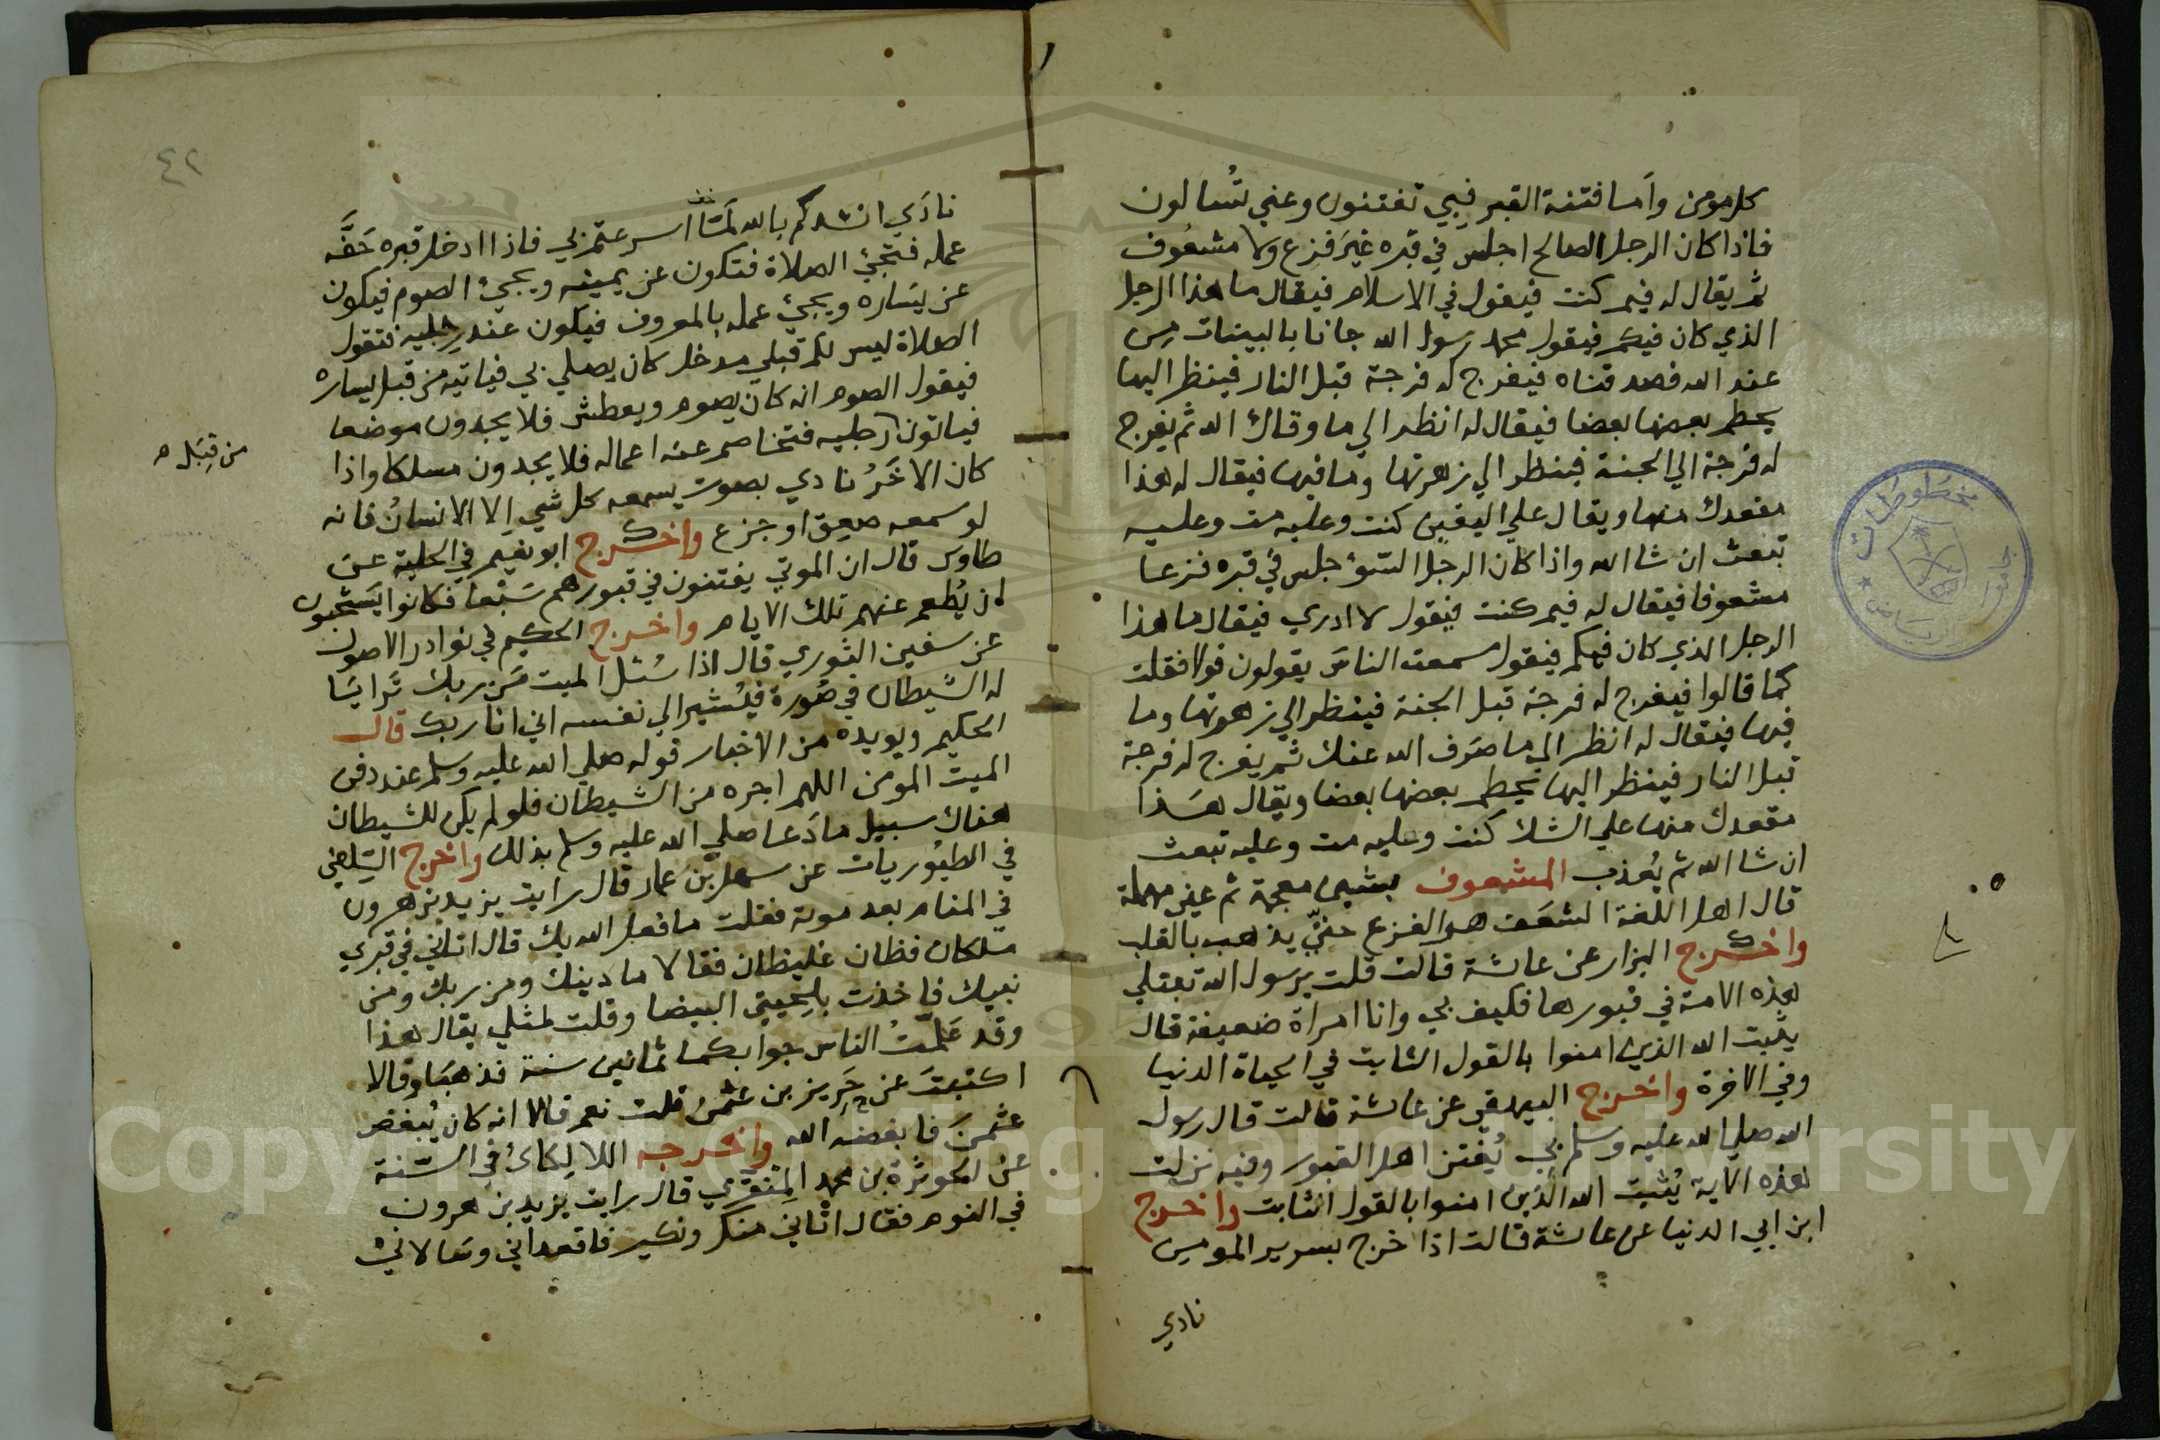 كل مومن واما فتنة القبر فبي تفتنون وعني تُسالون
فاذا كان الرجل الصالح اجلس في قبره غيرَ فزع ولا مشعُوف
ثم يقال له فيم كنت فيقول في الاسلام فيقال ما هذا الرجل
الذي كان فيكم فيقول محمد رسول الله جانا بالبينات مِن
عند الله فصدقناه فيفرج له فرجة قبل النار فينظر اليها
يحطم بعضها بعضا فيقال له انظر الي ما وقاك الله ثم يفرج
له فرجة الي الجنة فينظر الي زهرتها وما فيها فيقال له هذا
مقعدك منها ويقال علي اليقين كنت وعليه مت وعليه
تبعث ان شا الله واذا كان الرجل السّوُ جلس في قبره فزعا
مشعوفا فيقال له فيم كنت فيقول لا ادري فيقال ما هذا
الرجل الذي كان فيكم فيقول سمعت الناسَ يقولون قولا فقلت
كما قالوا فيفرج له فرجة قبل الجنة فينظر الي زهرتها وما
فيها فيقال له انظر الي ما صَرف الله عنك ثم يفرج له فرجة
قبل النار فينظر اليها يحطم بعضها بعضا ويقال هَذا
مقعدك منها علي الشك كنت وعليه مت وعليه تبعث
ان شا الله ثم يُعذب المشعوف بشين معجمة ثم عين مهملة
قال اهل اللغة الشعَف هو الفزع حتيّ يذهب بالقلب
واخرج البزار عن عائشة قالت قلت يرسول الله تبتلي
هذه الامة في قبورها فكيف بي وانا امراة ضعيفة قال
يثبت الله الذين امنوا بالقول الثابت في الحياة الدنيا
وفي الاخرة واخرج البيهقي عن عائشة قالت قال رسول
الله صلي الله عليه وسلم بي يُفتن اهل القبور وفيه نزلت
هذه الاية يُثبت الله الذين امنوا بالقول الثابت واخرج
ابن ابي الدنيا عن عائشة قالت اذا خرج بسرير المومن
نادي
مخطوطات
جامعة الرياض
٤٢
نادَي انشدكم بالله لمَا اسرعتم بي فاذا ادخل قبره حَفَّه
عمله فتجئ الصلاة فتكون عن يمينه ويجئ الصوم فيكون
عن يسَاره ويجئ عمله بالمعروف فيكون عند رِجليه فتقول
الصلاة ليس لكم قبلي مدخل كان يصلي بي فياتيه من قبل يساره
فيقول الصوم انه كان يصوم ويعطش فلا يجدون موضعا
فياتون رجليه فتخاصم عنه اعماله فلا يجدون مسلكا واذا
من قِبَل
كان الاخَرُ نادي بصوت يسمعه كل شي الا الانسان فانه
لو سمعه صعِق او جزع واخرج ابو نعيم في الحلية عن
طاوس قال ان الموتي يفتنون في قبورهم سَبْعًا فكانوا يَستحبون
ان يُطعم عنهم تلك الايام واخرج الحكيم في نوادر الاصول
عن سفين الثوري قال اذا سُئل الميت مَن ربك تَرايَا
له الشيطان في صُورة فيُشير الي نفسه اني انا ربك قال
الحكيم ويويده من الاخبار قوله صلي الله عليه وسلم عند دفن
الميت المومن اللهم اجره من الشيطان فلو لم يكن للشيطان
هناك سبيل ما دَعا صلي الله عليه وسلم بذلك واخرج السِّلَفي
في الطيُوريات عن سهل بن عمار قال رايت يزيد بن هرون
في المنام بعد موته فقلت ما فعل الله بك قال اتاني في قبري
ملكان فظان غليظان فقالا ما دينك ومن ربك ومن
نبيك فاخذت بلِحيتي البيضا وقلت لمثلي يقال هذا
وقد عَلمّتُ الناس جوابكما ثمانين سنة فذهبَا وقالا
اكتبتَ عن حَرِيز بن عثمن قلت نعم قالا انه كان يُبغض
عثمنَ فابغضه الله واخرجه اللالكائ في السّنة
عن الحوثرة بن محمد المِنقَرِي قال رايت يزيد بن هرون
في النوم فقال اتاني منكر ونكير فاقعداني وسَالاني
Copyright © King Saud University